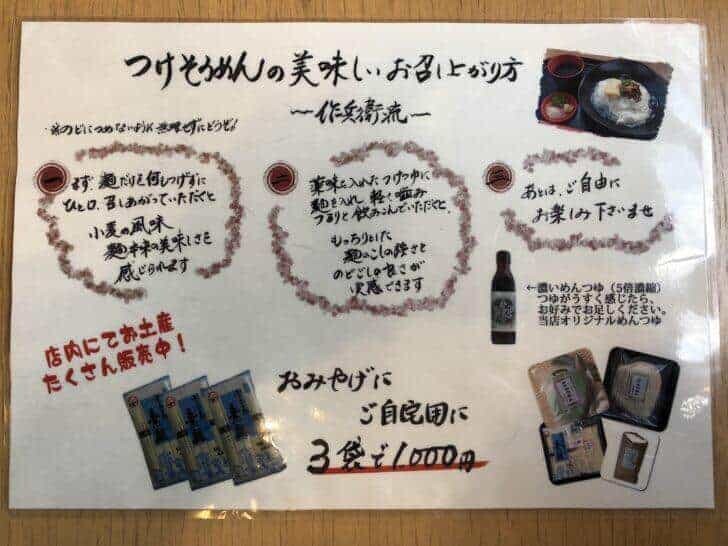 つけそうめんの美味しいお召し上がり方
〜作兵衛流〜
・麺のどにつめないように無理せずにどうぞ!
一
まず、麺だけを何もつけずに
ひと口、召しあがっていただくと
小麦の風味
麺本来の美味しさを
感じられます
二
薬味を入れたつけつゆに
麺を入れ、軽く噛み
つるりと飲みこんでいただくと、
もっちりとした
麺のこしの強さと
のどごしの良さが
実感できます
三
あとは、ご自由に
お楽しみ下さいませ
←濃いめんつゆ(5倍濃縮)
つゆがうすく感じたら、
お好みでお足しください。
当店オリジナルめんつゆ
店内にてお土産
たくさん販売中!
おみやげに
ご自宅用に
3袋で1,000円